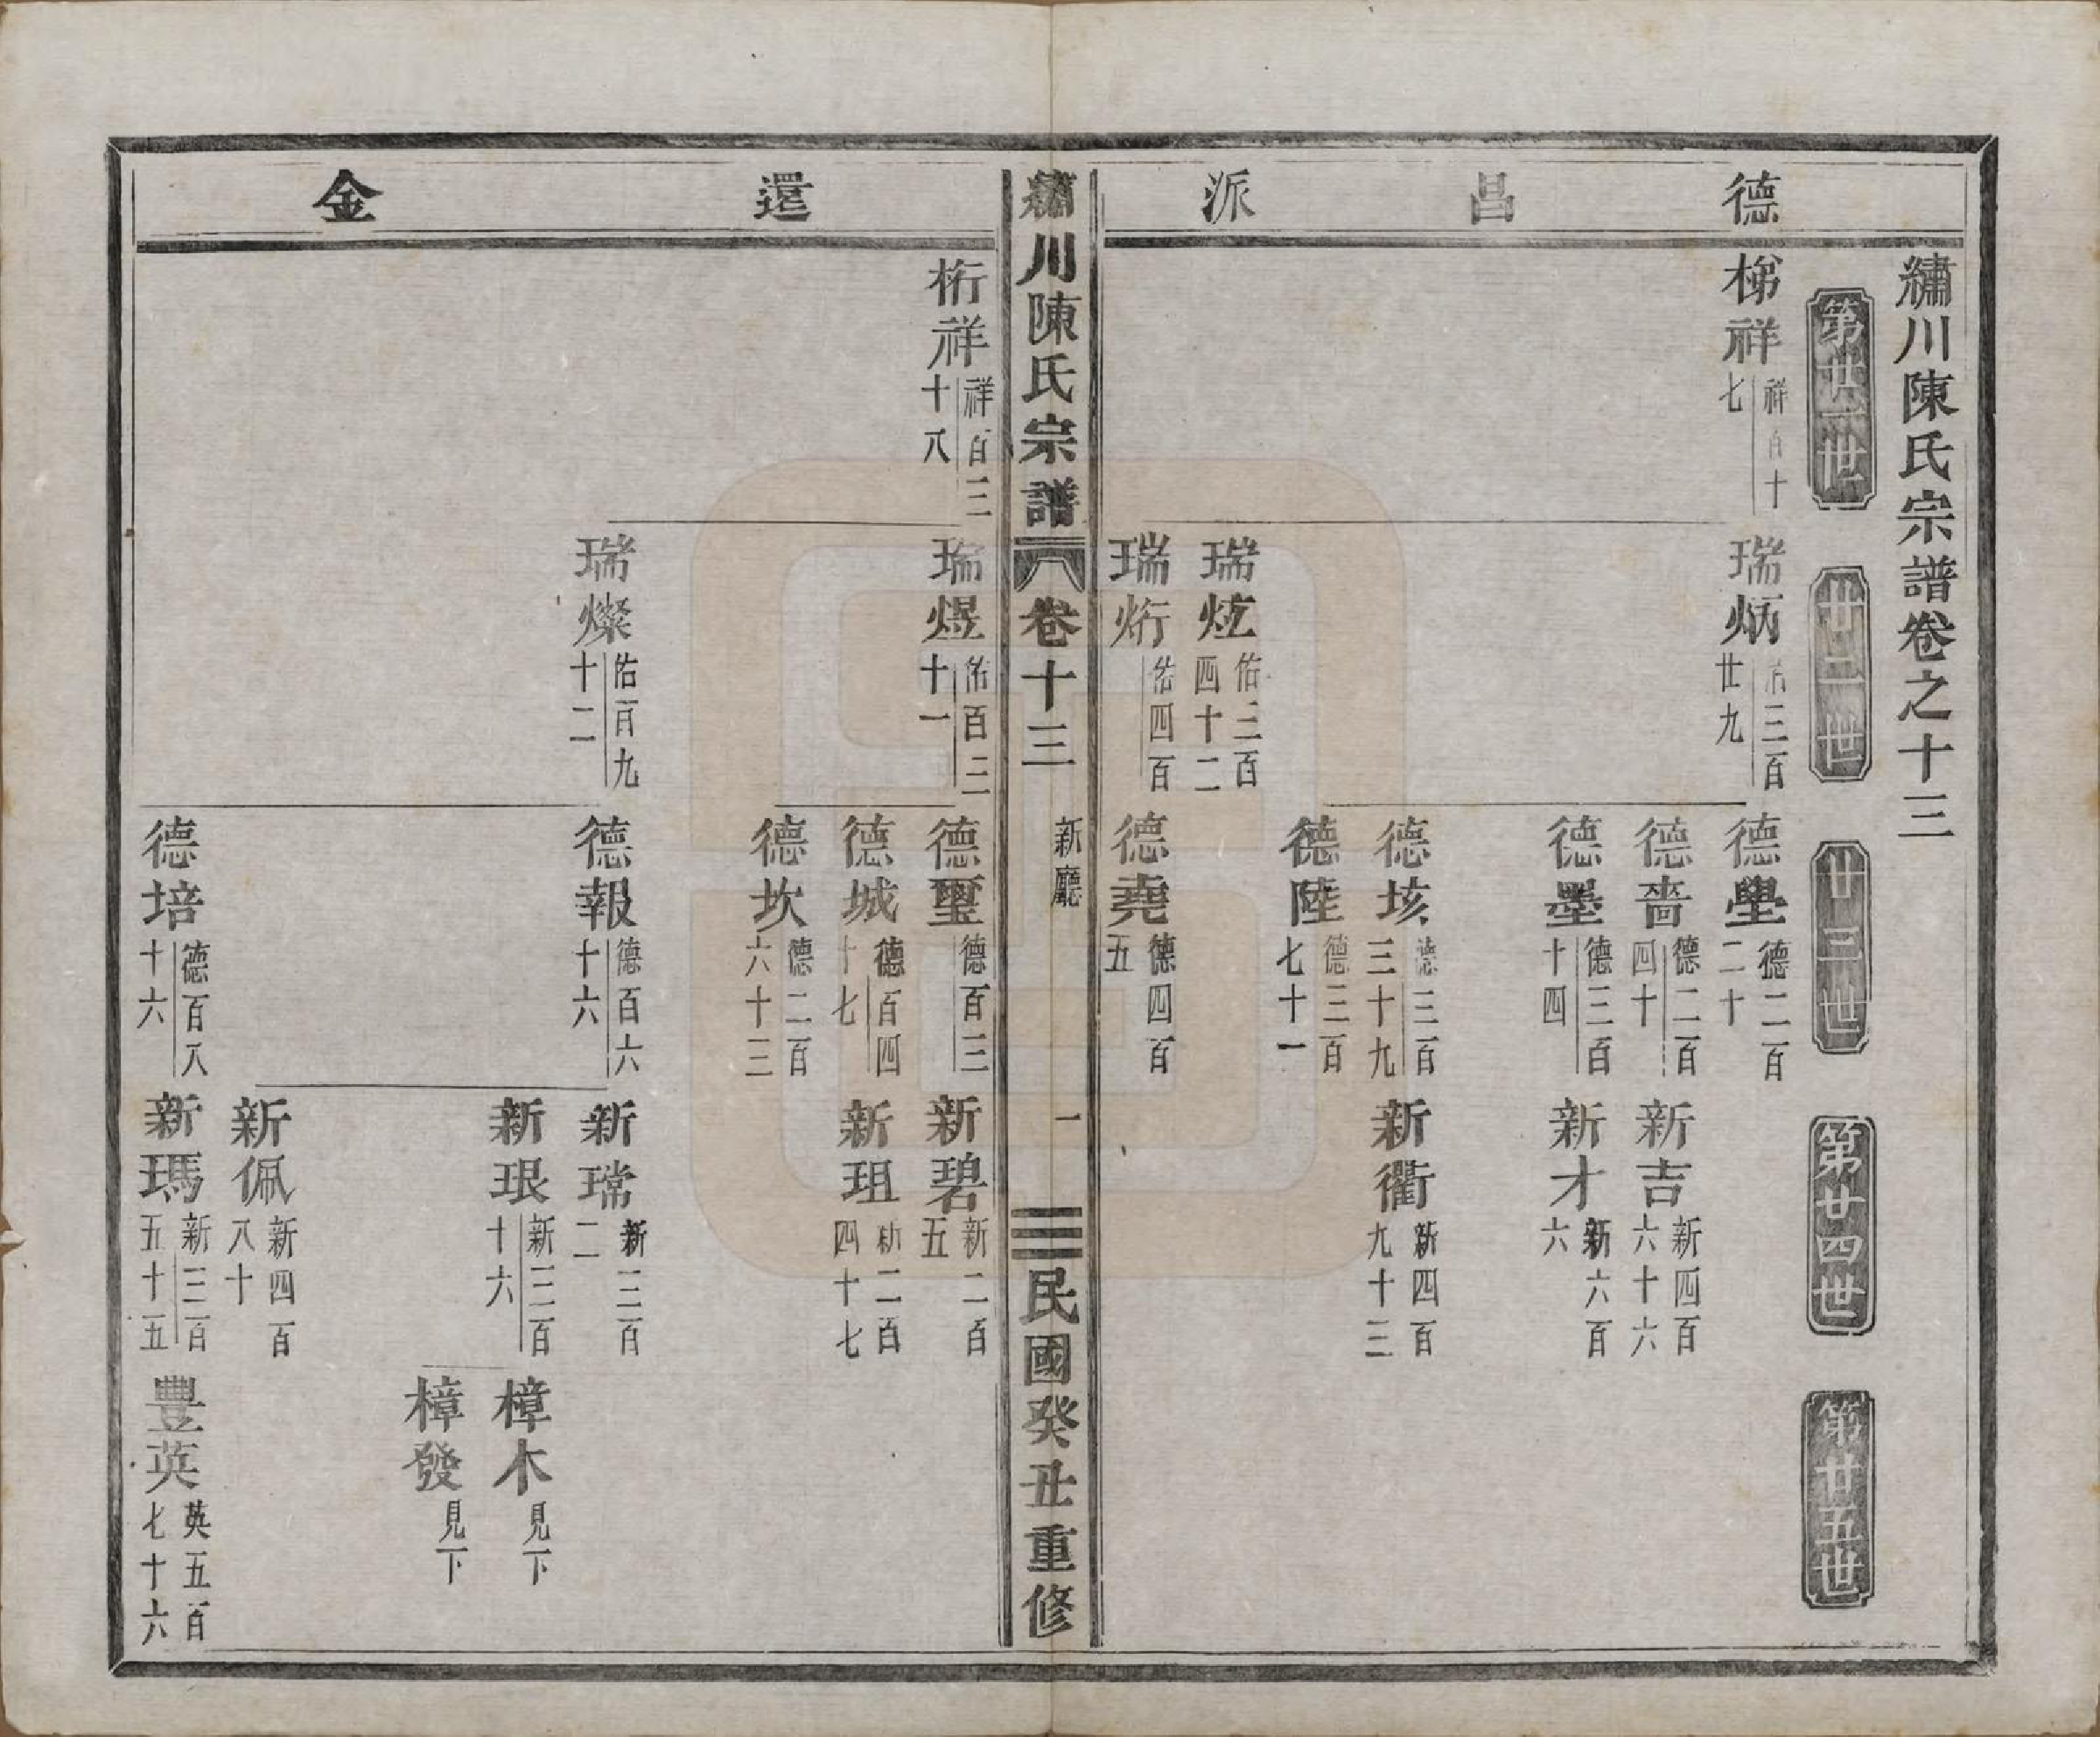 德昌派
繡川陳氏宗譜卷之十三
第廿一世
廿二世
廿三世
第廿四世
第廿五世
梯祥 祥百十七
瑞炳 佑三百廿九
德壆 德二百二十
德嗇 德二百四十
新吉 新四百六十六
德墨 德三百十四
新才 新六百六
德垓 德三百三十九
新衢 新四百九十三
德陸 德三百七十一
瑞炫 佑三百四十二
瑞烆 佑四百
德堯 德四百五
繡川陳氏宗譜 卷十三 新廳 一 民國癸丑重修
還金
桁祥 祥百三十八
瑞煜 佑百二十一
德璽 德百三
新碧 新二百五
德城 德百四十七
新珇 新二百四十七
德坎 德二百六十三
瑞燦 佑百九十二
德報 德百六十六
新瑺 新三百二
新珢 新三百十六
樟木 見下
樟發 見下
新佩 新四百八十
德培 德百八十六
新瑪 新三百五十五
豐英 英五百七十六